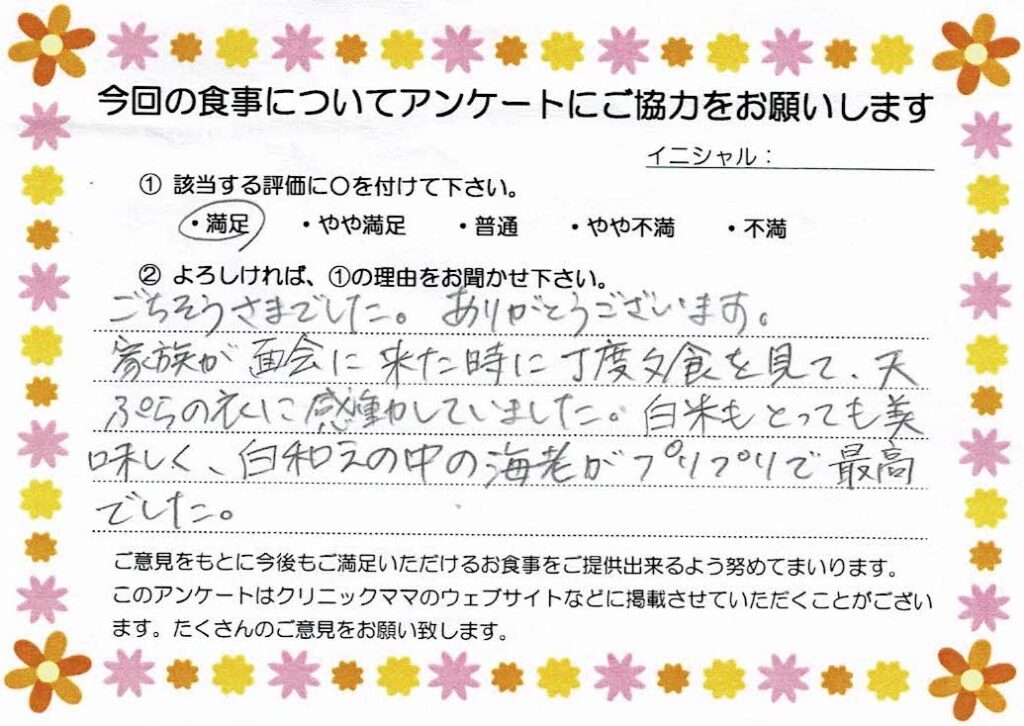 今回の食事についてアンケートにご協力をお願いします
イニシャル：
① 該当する評価に〇を付けて下さい。
・満足 ・やや満足 ・普通 ・やや不満 ・不満
② よろしければ、①の理由をお聞かせ下さい。
ごちそうさまでした。ありがとうございます。
家族が面会に来た時に丁度夕食を見て、天
ぷらの衣に感動していました。白米もとっても美
味しく、白和えの中の海老がプリプリで最高
でした。
ご意見をもとに今後もご満足いただけるお食事をご提供出来るよう努めてまいります。
このアンケートはクリニックママのウェブサイトなどに掲載させていただくことがござい
ます。たくさんのご意見をお願い致します。